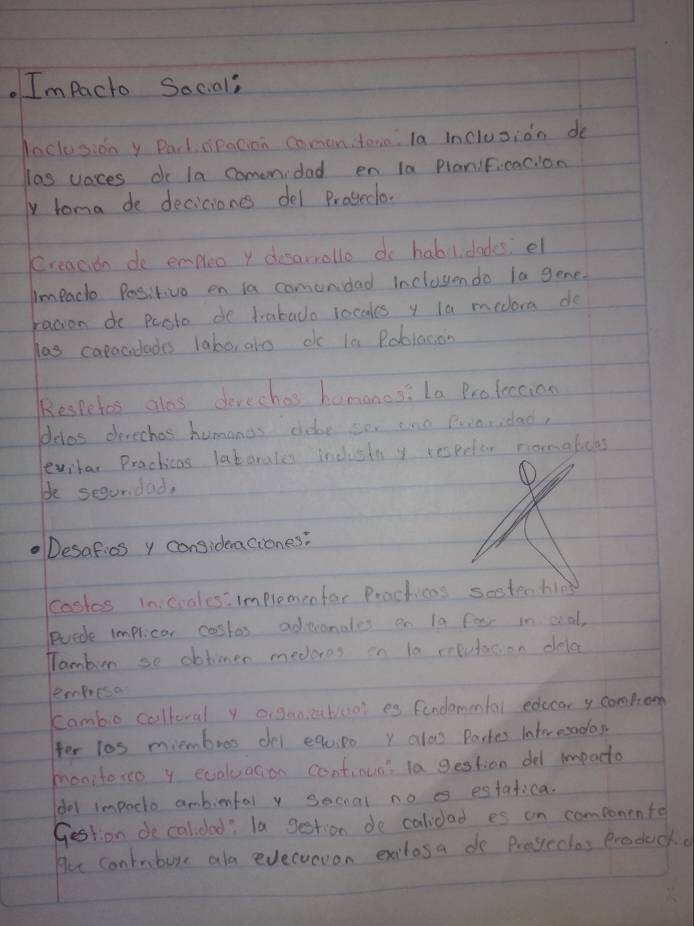 • Impacto Social:
Inclusión y Participación comunitaria: la inclusión de
las voces de la comunidad en la Planificación
y toma de deciciones del Proyecto.
Creación de empleo y desarrollo de habilidades: el
impacto Positivo en la comunidad incluyendo la gene-
racion de Pusto de trabado locales y la medora de
las capacidades laborales de la Poblacion
Respetos alos derechos humanos: La Proteccion
delos derechos humanos debe ser una Prioridad,
evitar Practicas laborales y respetar normativas
de seguridad.
• Desafios y consideraciones:
Costos iniciales: implementar Practicas sostenibles
Puede implicar costos adicionales en la fase inicial.
Tambien se obtinen medoras en la reputacion dela
empresa
Cambio cultural y organizativo: es fundamental educar y comprom
ter los miembros del equipo y alas Partes Interesadas.
monitoreo y evaluacion continua: la gestion del impacto
del impacto ambiental y social no es estatica.
Gestion de calidad: la gestion de calidad es un componente
que contribuye ala evecucion exitosa de Proyectos